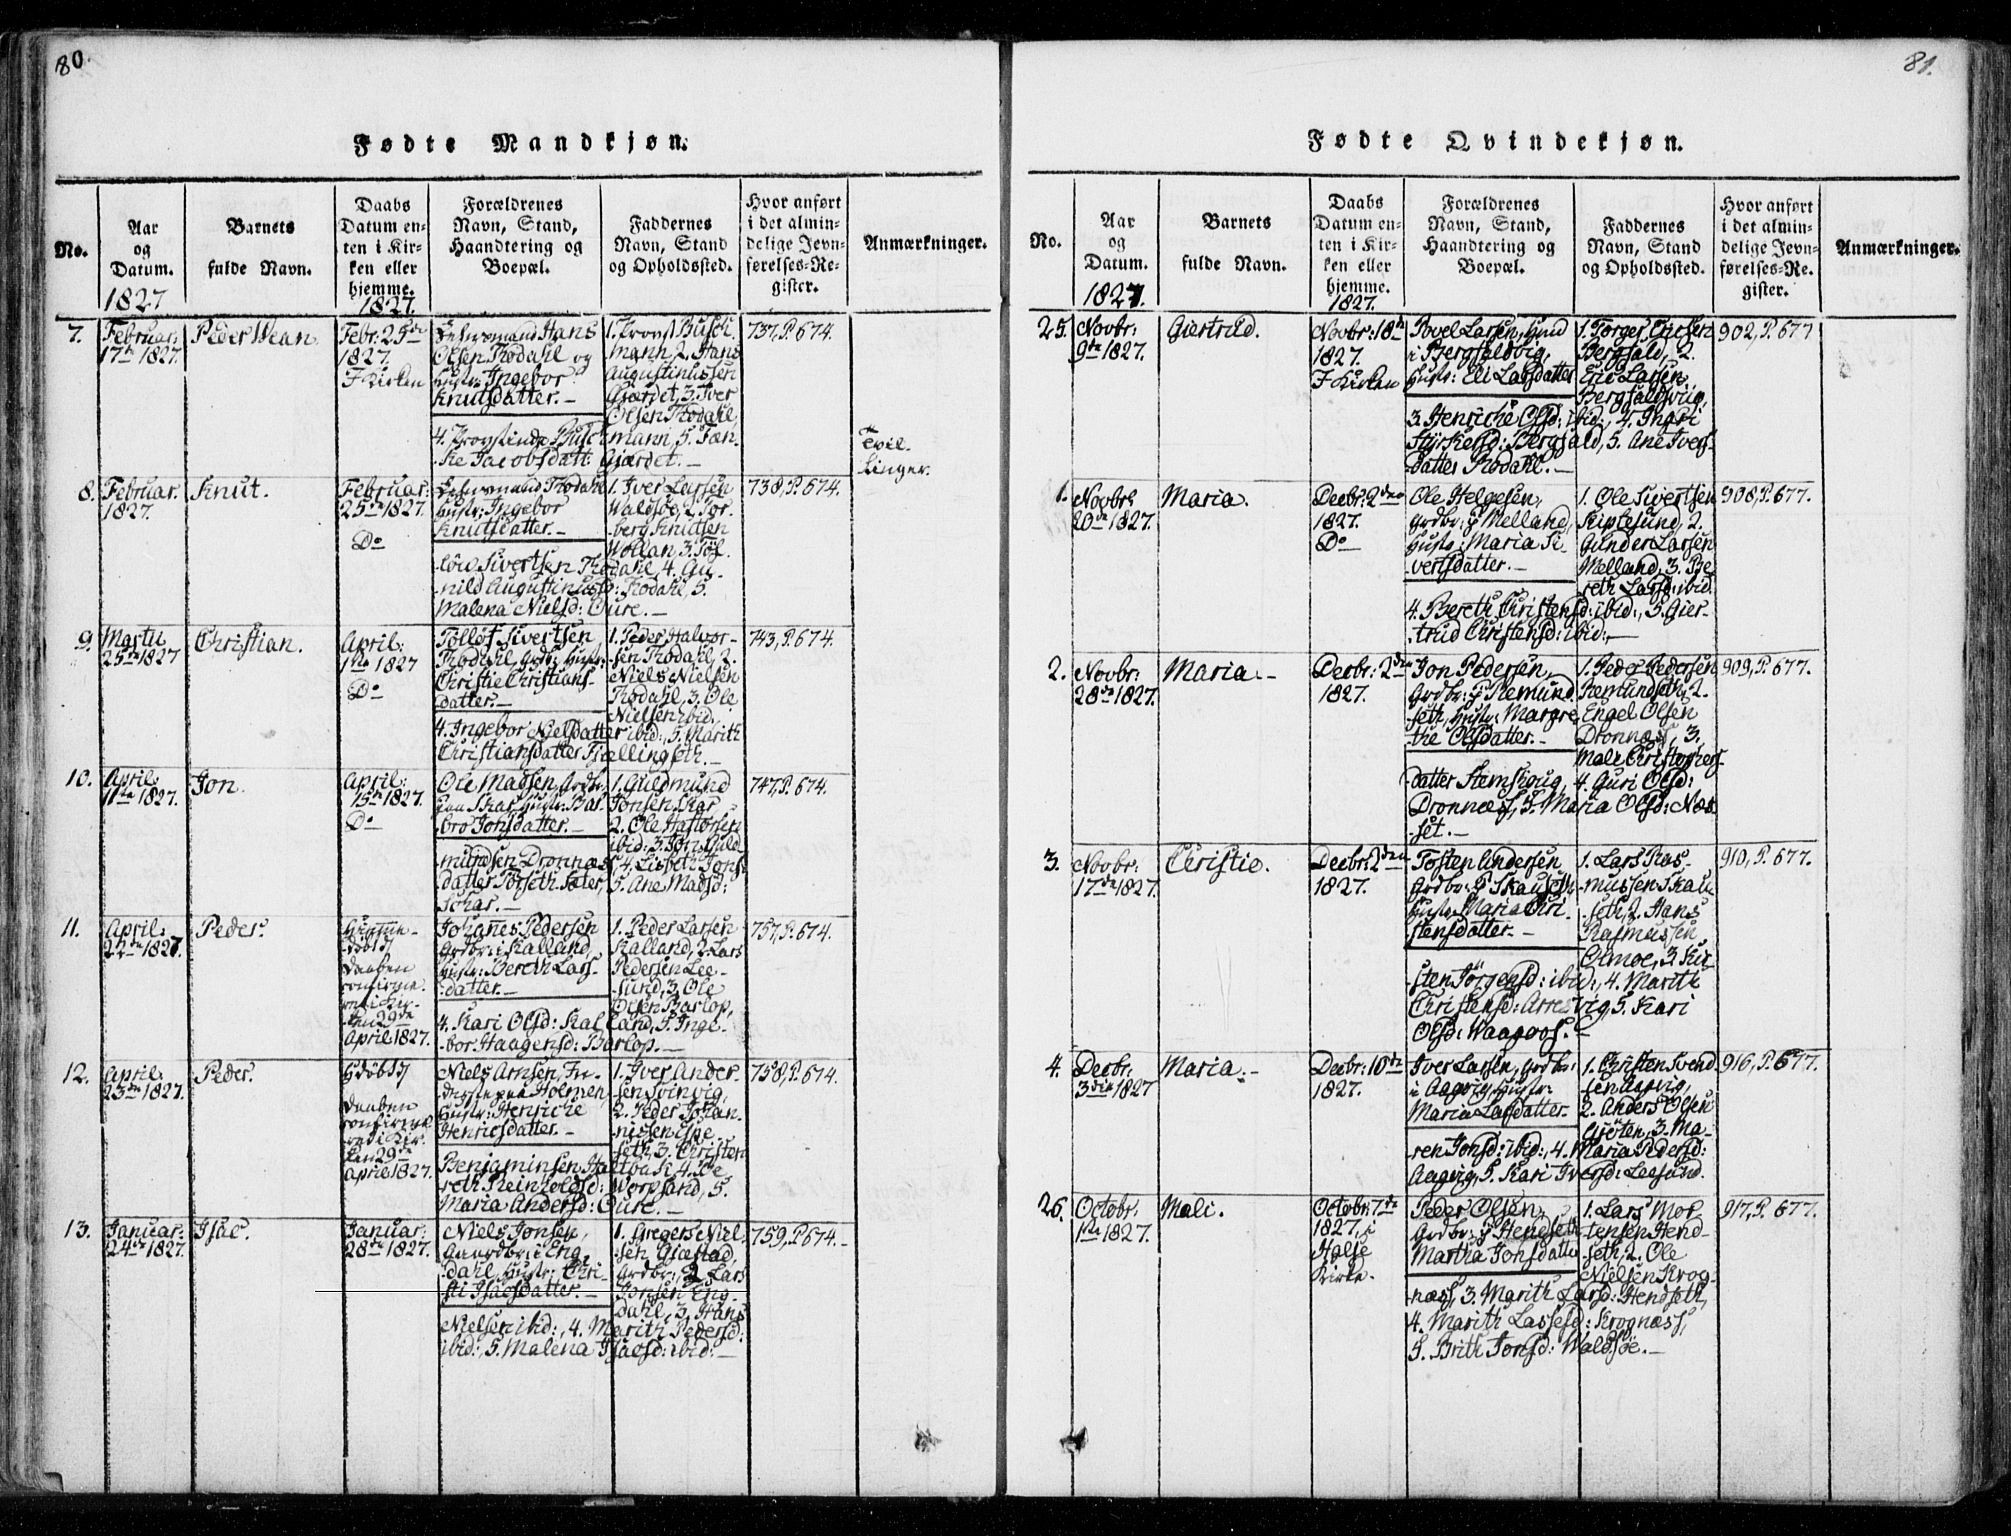 80.
Fødte Mandkjøn.
No.
Aar
og
Datum.
1827
Barnets
fulde Navn.
Daabs
Datum en-
ten i Kir-
ken eller
hjemme.
1827.
Forældrenes
Navn, Stand,
Haandtering og
Boepæl.
Faddernes
Navn, Stand
og Opholdssted.
Hvor anført
i det almin-
delige Jevn-
førelses-Re-
gister.
Anmærkninger.
7.
Februar:
17de 1827.
Peder Wean.
Febr: 25de
1827.
I Kirken
Hans
Olsen Rodahl og
Hustr: Ingebor
Knutsdatter.-
1. Provst Busch-
mann, 2. Hans
Augustinussen
Gjærdet, 3. Iver
Olsen Rodahl,
4. Provstinde Busch
mann, 5. Jæn-
-ke Jacobsdatt: Gjærdet.-
737, P. 674.
Tvil-
linger.
8.
Februar.
1827.
Knut.
Februar:
25de 1827.
Do
Rodahl
Hustr: Ingebor
Knutsdatter.-
1. Iver Larsen
Waldsøe, 2. Tor-
berg Knutsen
Wollan, 3. Töl-
-löw Sivertsen Rodahl, 4. Gu-
-nild Augustinusd: Rodahl, 5.
Malena Nielsd: Oure.-
738, P. 674.
9.
Martii
25de 1827
Christian.
April:
1ste 1827
Do
Tollöf Sivertsen
Rodahl, Grdbr: Hustr:
Christie Christians-
datter.-
1. Peder Halvor-
-sen Rodahl, 2.
Niels Nielsen
Rodahl, 3. Ole
Nielsen ibid,
4. Ingebor Nielsdatter ibid:, 5. Marith
Christiansdatter Fjellingseth.-
743, P. 674.
10.
April:
11te 1827.
Jon.
April:
15de 1827.
Do
Ole Madsen, Grdbr:
paa Skar, Hustr: Bar-
-bro Jonsdatter.-
1. Guldmund
Jonsen Skar
2. Ole Hastorsen
ibid: 3. Jon Guld
mundsen Dronnæs 4. Lisbeth Jons
datter Torseth Sæter, 5. Ane Madsd:
Schar.-
747, P. 674.
11.
April:
22de 1827.
Peder.
Hjemme-
-döbt
Daaben
confirme-
ret i Kir-
ken 29de
April 1827.
Johannes Pedersen
Grdbr: i Kalland,
Hustr: Bereth Lars-
-datter.-
1. Peder Larsen
Kalland, 2. Lars
Pedersen Lee-
-sund, 3. Ole
Olsen Barlop,
4. Kari Olsd: Kal land, 5. Inge-
-bor Haagensd: Barlop.-
757, P. 674.
12.
April:
23de 1827.
Peder.
Daaben
confirme
ret i Kir-
ken 29de
April 1827.
Niels Arnsen,
Holmen,
Hustr: Henriche
Henricsdatter.-
1. Iver Ander-
sen Svinvig,
2. Peder Johan-
nissen Espe
seth, 3. Christen
Benjaminsen 4. Be
reth Reinholdsd: Worpsand, 5.
Maria Andersd: Oure.-
758, P. 674.
13.
Januar:
24de 1827.
Isac.
Januar:
28de 1827.
Niels Jonsen,
Gaardbr: i Eng
dahl, Hustr: Chri-
sti Isacsdatter.-
1. Gregers Niel-
-sen Gjæstad,
Grdbr:, 2. Lars
Jonsen Eng-
dahl, 3. Hans
Nielsen ibid:, 4. Marith Pedersd:
ibid:, 5. Malena Isacsd: ibid:-
759, P. 674.-
81.
Fødte Qvindekjøn.
No.
Aar
og
Datum.
1827.
Barnets
fulde Navn.
Daabs
Datum en-
ten i Kir-
ken eller
hjemme.
1827.
Forældrenes
Navn, Stand,
Haandtering og
Boepæl.
Faddernes
Navn, Stand
og Opholdssted.
Hvor anført
i det almin-
delige Jevn-
førelses-Re-
gister.
Anmærkninger.
25.
Novbr:
9de 1827.
Giertrud.
Novbr: 18de
1827.
I Kirken
Povel Larsen,
i Bergsaldvig,
Hustr: Eli Larsdatter
1. Torger Ericsen
Bergsald, 2.
Eric Larsen
Bergsaldsvig,
3. Henriche Olsd: ibid:, 4. Ingri
Styrkersd: Bergsald, 5. Ane Ivers-
datter Rodahl.-
902, P. 677
1.
Novbr:
20de 1827.
Maria.
Decbr: 2den
1827.
Do
Ole Helgesen,
Grdbr: p Melland,
Hustr: Maria Si-
vertsdatter.-
1. Ole Sivertsen
Skiplesund, 2.
Gunder Larsen
Melland, 3. Be
reth Larsd: ibid.
4. Bereth Christensd: ibid:, 5. Gier-
-trud Christensd: ibid:-
908, P. 677.
2.
Novbr:
28de 1827.
Maria.-
Decbr: 2den
1827.
Jon Pedersen,
Grdbr: p Remund
seth, Hustr: Margre
-the Olsdatter.-
1. Peder Pedersen
Remundseth, 2.
Engel Olsen
Dronnæs, 3.
Mali Christophers-
datter Stemskoug, 4. Guri Olsd:
Dronnæss, 5. Maria Olsd: Næs-
-set.-
909, P. 677.
3.
Novbr:
17de 1827.
Christie.
Decbr: 2den
1827.
Tosten Andersen
Grdbr: p Skauseth
Hustr: Maria Chri-
stensdatter.-
1. Lars Ras-
-mussen Skau-
-seth, 2. Hans
Rasmussen
Olmoe, 3. Kir-
sten Jörgensd: ibid:, 4. Marith
Christensd: Arresvig, 5. Kari
Olsd: Waagoos.-
910, P. 677.
4.
Decbr:
3die 1827
Maria.-
Decbr: 16de
1827.
Iver Larsen, Grdbr:
i Aagvig, Hustr:
Maria Larsdatter.-
1. Christen Svend
sen Aagvig,
2. Anders Olsen
3. Ma-
ren Jonsd: ibid:, 4. Maria Pedersd:
Aagvig, 5. Kari Iversd: Leesund.
916, P. 677.
26.
Octobr:
1ste 1827.
Mali.
Octobr: 7de
1827. i
Halse
Kirke.
Peder Olsen,
Grdbr: p Hendseth
Martha Jonsdatter
1. Lars Mor-
tensen Hend-
seth, 2. Ole
Nielsen Krog-
næss, 3. Marith Larsd: Hendseth,
4. Marith Lassesd: Krognæss,
5. Brith Jonsd: Waldsøe.-
917, P. 677.